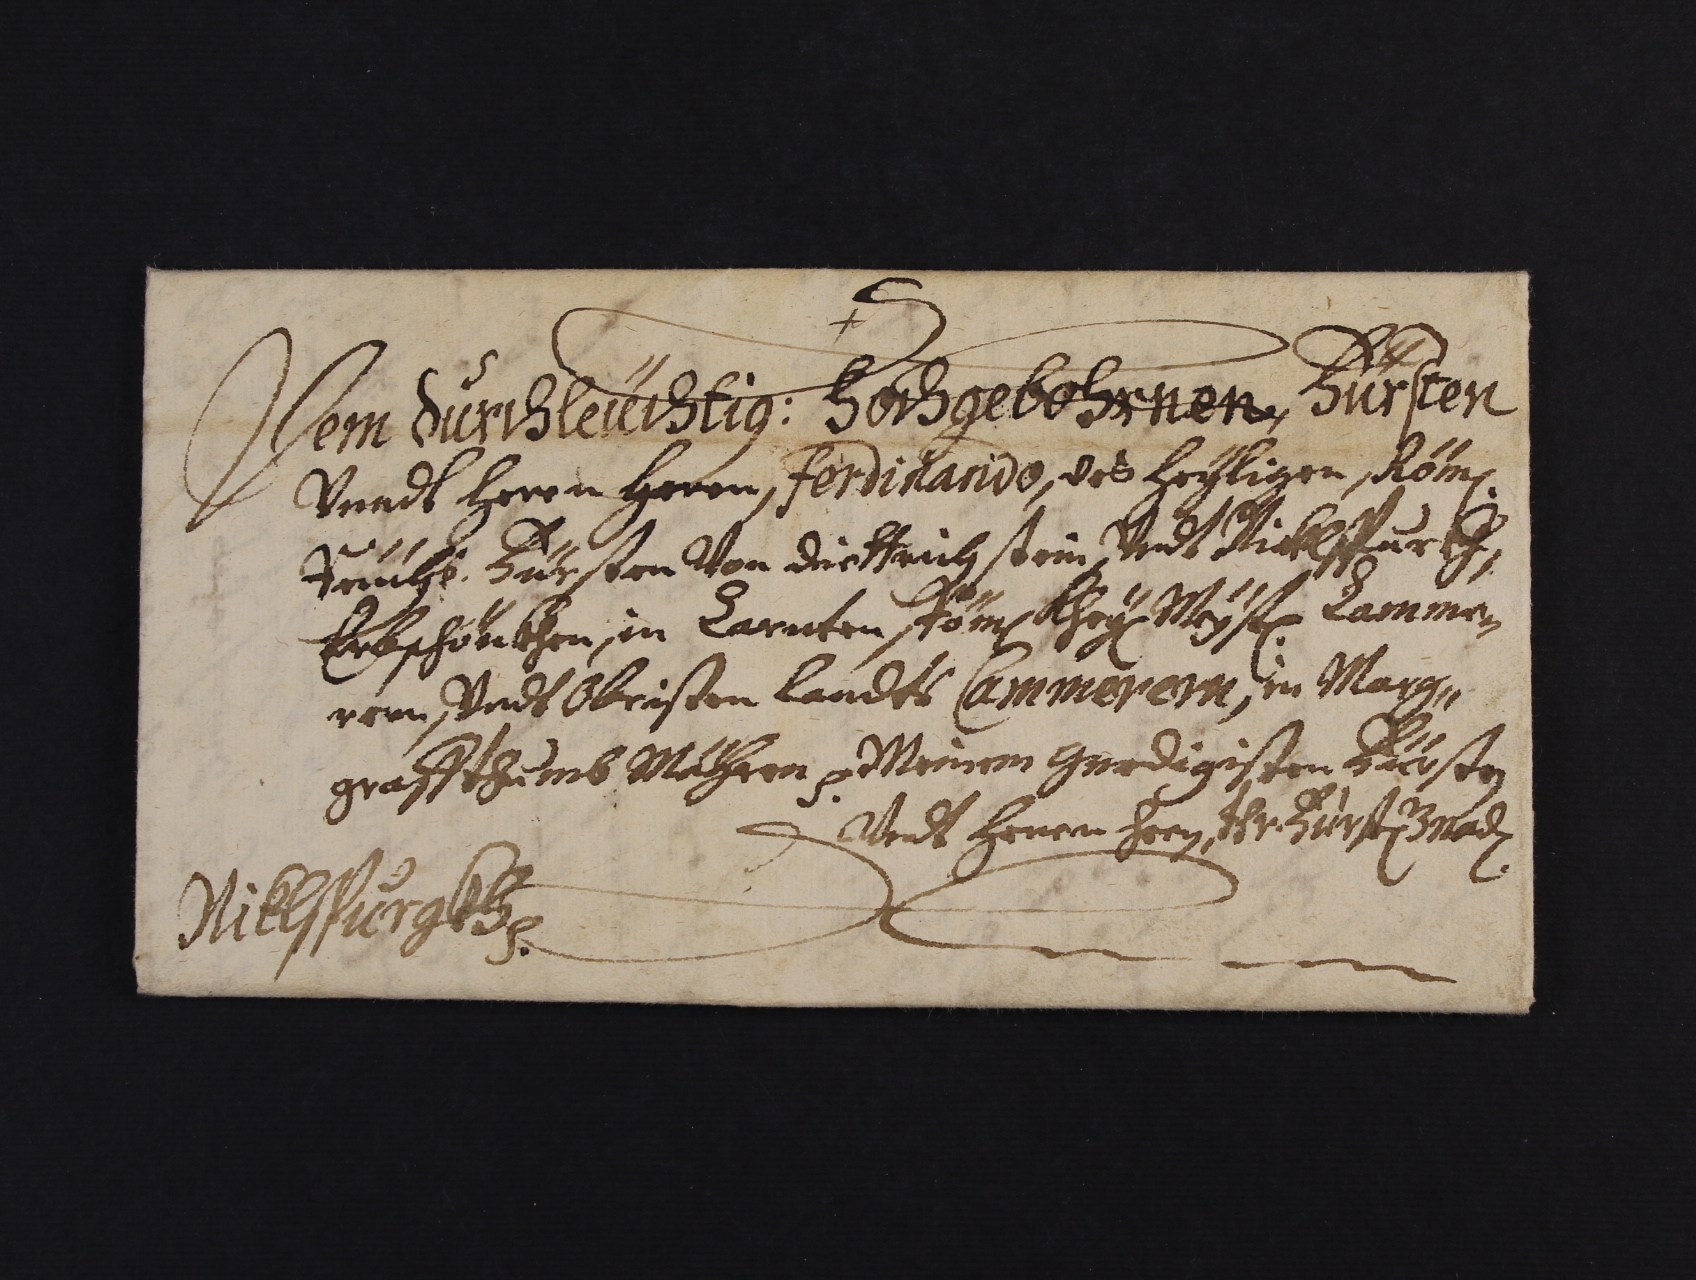 Dem Durchleuchtig: Hochgebohrnen, Fürsten
Vnndt Herrn Herrn, Ferdinando, des Heyligen, Röm:
Reichs. Fürsten Von Diettrichstein, Vndt Niklspurg,
Erbschönkhen, in Carnten, Röm: Khay: Mayst: Camme„
rern, Vndt Obristen Landts Cammerern, in Marg„
graffthumb Mähren p. Meinem Gnedigisten Fürsten
Vndt Herrn Herrn, Ihr Fürstl: Gnad:
Niklspurgkh p.